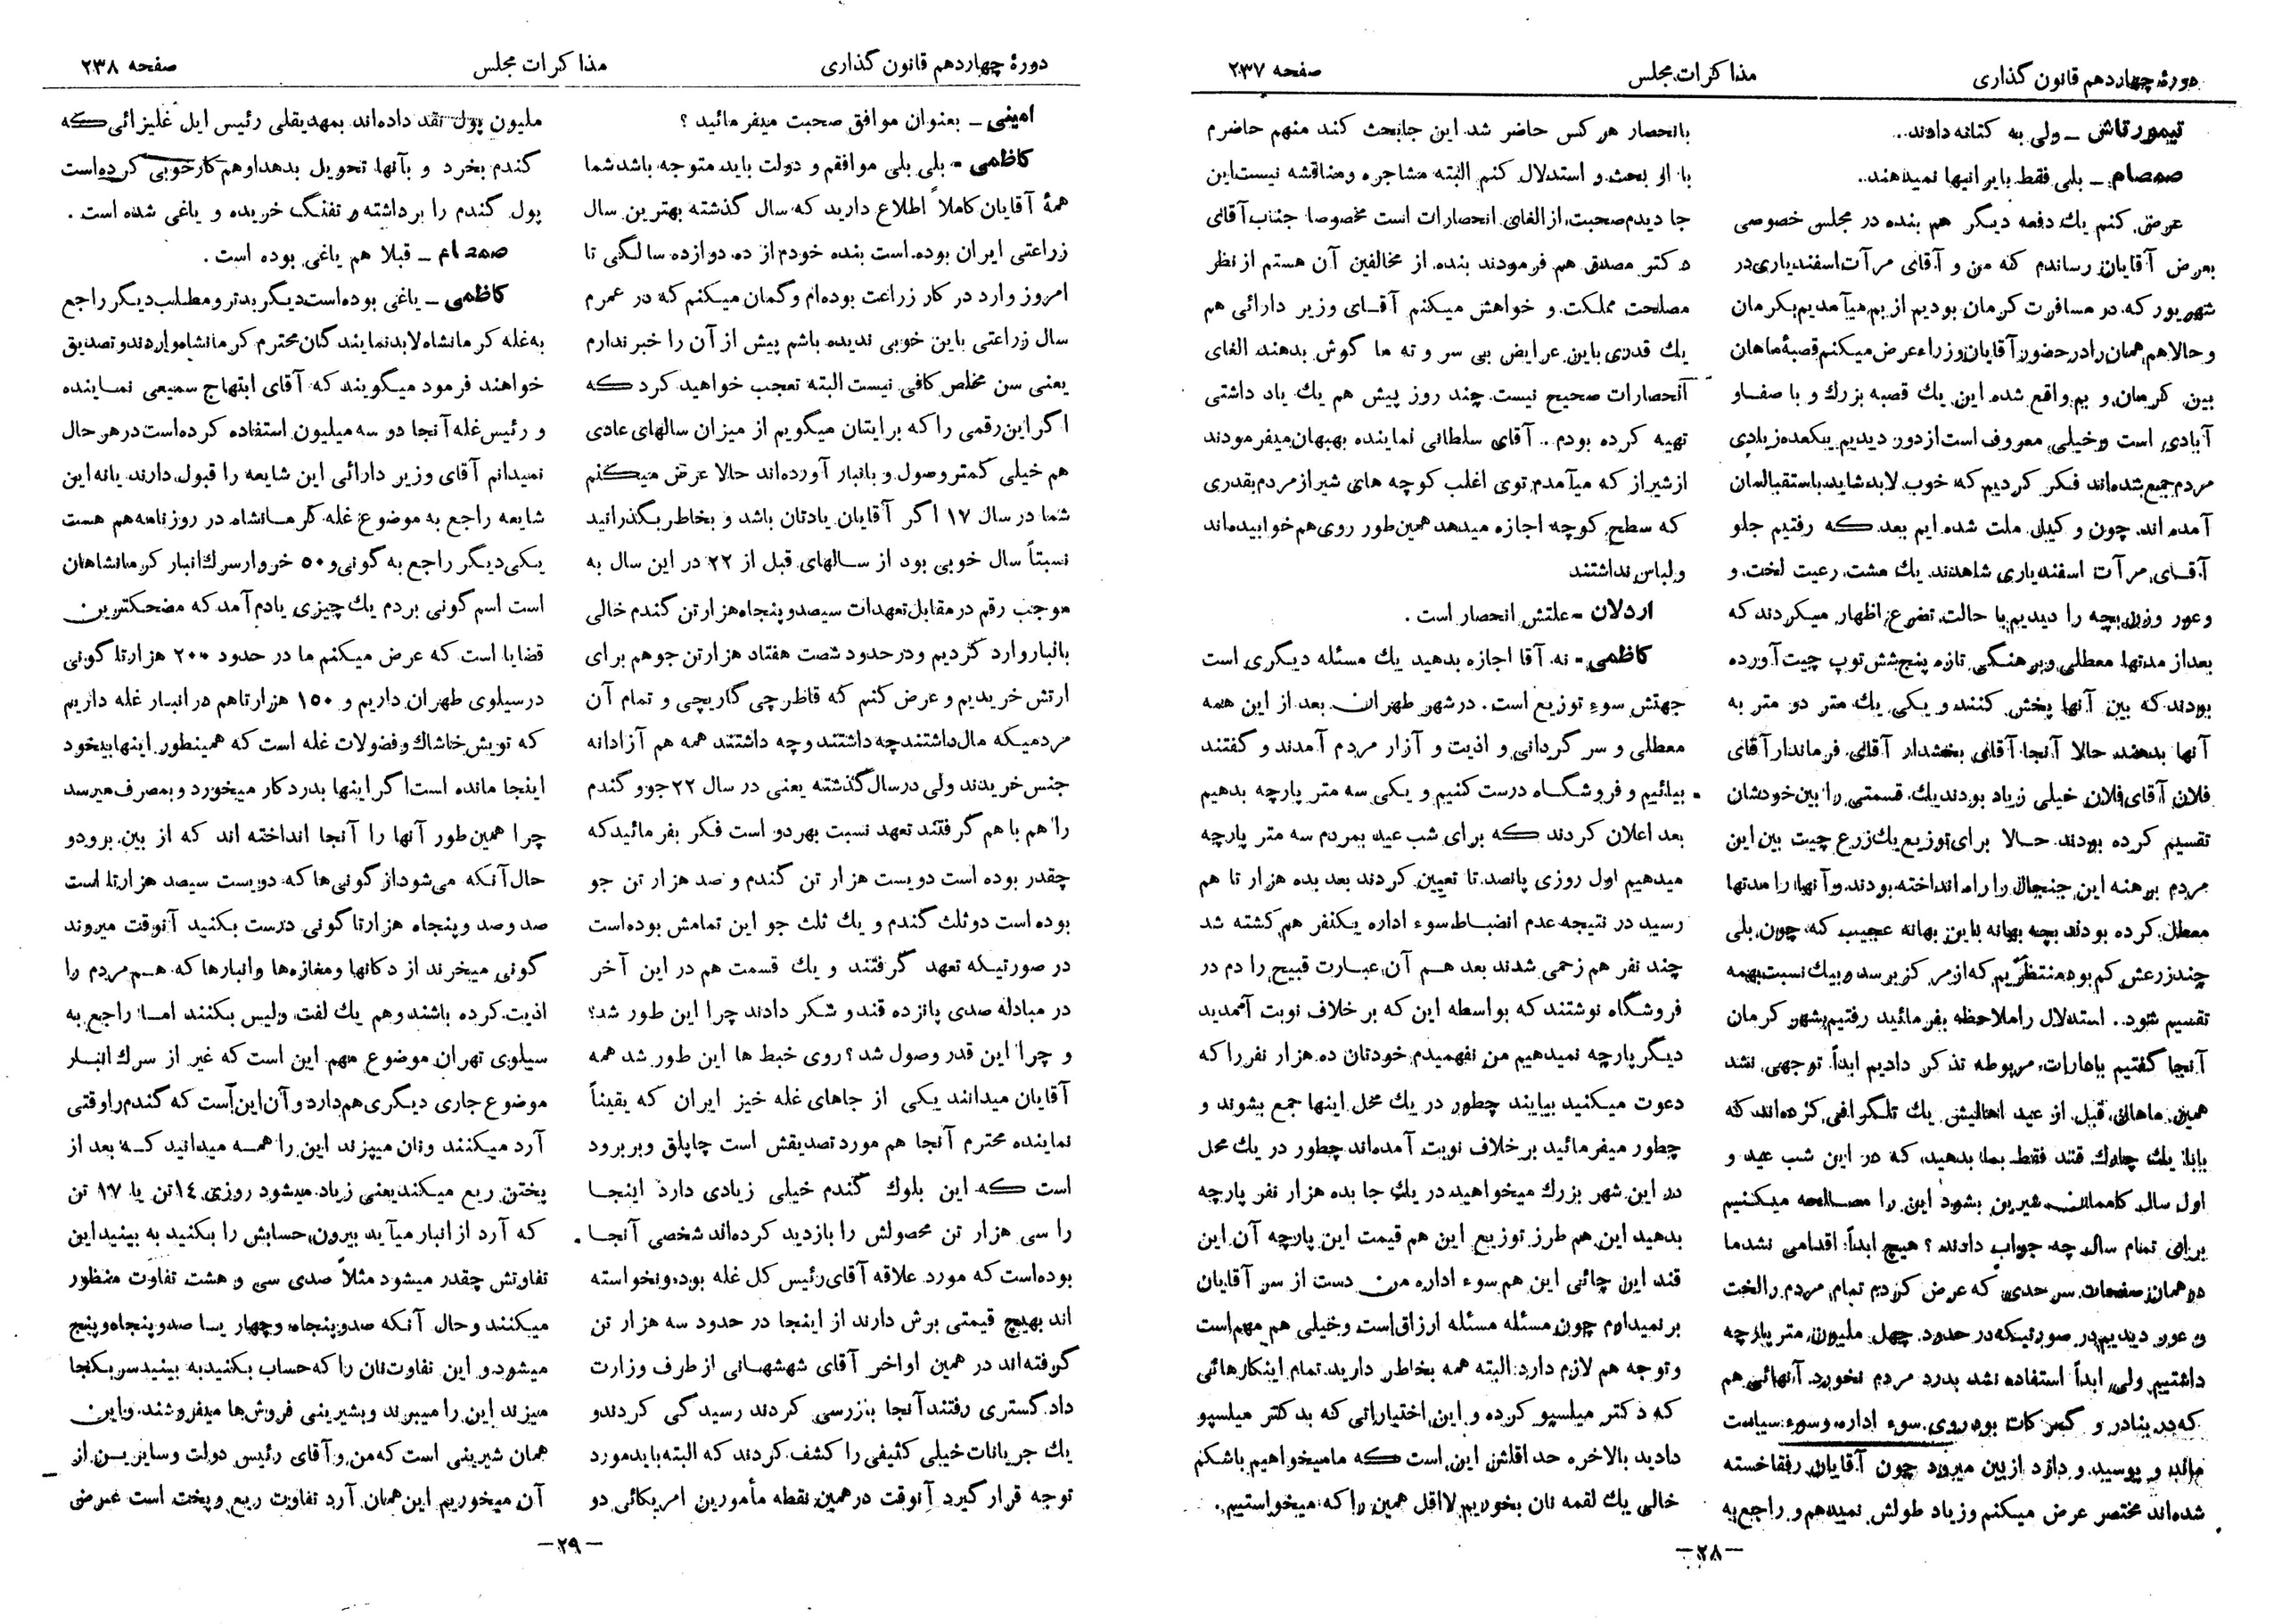 دورهٔ چهاردهم قانون گذاری
مذاکرات مجلس
صفحه ۲۳۷
تیمورتاش ــ ولی به کتانه دادند..
صمصام ــ بلی فقط بایرانیها نمیدهند..
عرض کنم یك دفعه دیگر هم بنده در مجلس خصوصی
بعرض آقایان رساندم که من و آقای مرآت اسفندیاری در
شهریور که در مسافرت کرمان بودیم از بم میآمدیم بکرمان
و حالا هم همان را در حضور آقایان وزراء عرض میکنم قصبهٔ ماهان
بین کرمان و بم واقع شده این یك قصبه بزرك و با صفا و
آبادی است و خیلی معروف است از دور دیدیم یکعده زیادی
مردم جمع شده‌اند فکر کردیم که خوب لابد شاید باستقبالمان
آمده اند چون وکیل ملت شده ایم بعد که رفتیم جلو
آقای مرآت اسفندیاری شاهدند یك مشت رعیت لخت و
و عور وزن بچه را دیدیم با حالت تضرع اظهار میکردند که
بعد از مدتها معطلی و برهنگی تازه پنج شش توپ چیت آورده
بودند که بین آنها پخش کنند و یکی یك متر دو متر به
آنها بدهند حالا آنجا آقای بخشدار آقای فرماندار آقای
فلان آقای فلان خیلی زیاد بودند یك قسمتی را بین خودشان
تقسیم کرده بودند حالا برای توزیع یك زرع چیت بین این
مردم برهنه این جنجال را راه انداخته بودند و آنها را مدتها
معطل کرده بودند بچه بهانه باین بهانه عجیب که چون بلی
چند زرعش کم بود منتظریم که از مرکز برسد و بیك نسبت بهمه
تقسیم شود.. استدلال را ملاحظه بفرمائید رفتیم بشهر کرمان
آنجا گفتیم بامارات مربوطه تذکر دادیم ابداً توجهی نشد
همین ماهان قبل از عید اهالیش یك تلگرافی کرده‌اند که
بابا یك چارك قند فقط بما بدهید که در این شب عید و
اول سال کاممان شیرین بشود این را مصالحه میکنیم
برای تمام سال چه جواب دادند ؟ هیچ ابداً اقدامی نشد ما
در همان صفحات سرحدی که عرض کردیم تمام مردم را لخت
و عور دیدیم در صورتیکه در حدود چهل ملیون متر پارچه
داشتیم ولی ابداً استفاده نشد بدرد مردم نخورد آنهائی هم
که در بنادر و گمرکات بود روی سوء اداره و سوء سیاست
مانده و پوسید و دارد از بین میرود چون آقایان رفقا خسته
شده‌اند مختصر عرض میکنم و زیاد طولش نمیدهم و راجع به
بانحصار هرکس حاضر شد این جا بحث کند منهم حاضرم
با او بحث و استدلال کنم البته مشاجره و مناقشه نیست این
جا دیدم صحبت از الغای انحصارات است مخصوصا جناب آقای
دکتر مصدق هم فرمودند بنده از مخالفین آن هستم از نظر
مصلحت مملکت و خواهش میکنم آقای وزیر دارائی هم
یك قدری باین عرایض بی سر و ته ما گوش بدهند الغای
انحصارات صحیح نیست چند روز پیش هم یك یاد داشتی
تهیه کرده بودم.. آقای سلطانی نماینده بهبهان میفرمودند
از شیراز که میآمدم توی اغلب کوچه های شیراز مردم بقدری
که سطح کوچه اجازه میدهد همین طور روی هم خوابیده‌اند
و لباس نداشتند
اردلان - علتش انحصار است .
کاظمی - نه آقا اجازه بدهید یك مسئله دیگری است
جهتش سوء توزیع است . در شهر طهران بعد از این همه
معطلی و سرگردانی و اذیت و آزار مردم آمدند و گفتند
بیائیم و فروشگاه درست کنیم و یکی سه متر پارچه بدهیم
بعد اعلان کردند که برای شب عید بمردم سه متر پارچه
میدهیم اول روزی پانصد تا تعیین کردند بعد بده هزار تا هم
رسید در نتیجه عدم انضباط سوء اداره یکنفر هم کشته شد
چند نفر هم زخمی شدند بعد هم آن عبارت قبیح را دم در
فروشگاه نوشتند که بواسطه این که برخلاف نوبت آمدید
دیگر پارچه نمیدهیم من نفهمیدم خودتان ده هزار نفر را که
دعوت میکنید بیایند چطور در یك محل اینها جمع بشوند و
چطور میفرمائید برخلاف نوبت آمده‌اند چطور در یك محل
در این شهر بزرك میخواهید در یك جا بده هزار نفر پارچه
بدهید این هم طرز توزیع این هم قیمت این پارچه آن این
قند این چائی این هم سوء اداره من دست از سر آقایان
برنمیدارم چون مسئله مسئله ارزاق است و خیلی هم مهم است
و توجه هم لازم دارد البته همه بخاطر دارید تمام اینکارهائی
که دکتر میلسپو کرده و این اختیاراتی که بدکتر میلسپو
دادید بالاخره حداقلش این است که ما میخواهیم باشکم
خالی یك لقمه نان بخوریم لااقل همین را که میخواستیم .
-۲۸-
دورهٔ چهاردهم قانون گذاری
مذاکرات مجلس
صفحه ۲۳۸
امینی ــ بعنوان موافق صحبت میفرمائید ؟
کاظمی - بلی بلی موافقم و دولت باید متوجه باشد شما
همهٔ آقایان کاملاً اطلاع دارید که سال گذشته بهترین سال
زراعتی ایران بوده است بنده خودم از ده دوازده سالگی تا
امروز وارد در کار زراعت بوده‌ام و گمان میکنم که در عمرم
سال زراعتی باین خوبی ندیده باشم پیش از آن را خبر ندارم
یعنی سن مخلص کافی نیست البته تعجب خواهید کرد که
اگر این رقمی را که برایتان میگویم از میزان سالهای عادی
هم خیلی کمتر وصول و بانبار آورده‌اند حالا عرض میکنم
شما در سال ۱۷ اگر آقایان یادتان باشد و بخاطر بگذرانید
نسبتاً سال خوبی بود از سالهای قبل از ۲۲ در این سال به
موجب رقم در مقابل تعهدات سیصد و پنجاه هزار تن گندم خالی
بانبار وارد کردیم و در حدود شصت هفتاد هزار تن جو هم برای
ارتش خریدیم و عرض کنم که قاطرچی گاریچی و تمام آن
مردمیکه مال داشتند چه داشتند و چه داشتند همه هم آزادانه
جنس خریدند ولی در سال گذشته یعنی در سال ۲۲ جو و گندم
را هم با هم گرفتند تعهد نسبت بهر دو است فکر بفرمائید که
چقدر بوده است دویست هزار تن گندم و صد هزار تن جو
بوده است دو ثلث گندم و یك ثلث جو این تمامش بوده است
در صورتیکه تعهد گرفتند و یك قسمت هم در این آخر
در مبادله صدی پانزده قند و شکر دادند چرا این طور شد؟
و چرا این قدر وصول شد ؟ روی خبط ها این طور شد همه
آقایان میدانند یکی از جاهای غله خیز ایران که یقیناً
نماینده محترم آنجا هم مورد تصدیقش است چاپلق و بربرود
است که این بلوك گندم خیلی زیادی دارد اینجا
را سی هزار تن محصولش را بازدید کرده‌اند شخصی آنجا
بوده است که مورد علاقه آقای رئیس کل غله بوده و نخواسته
اند بهیچ قیمتی برش دارند از اینجا در حدود سه هزار تن
گرفته‌اند در همین اواخر آقای شهشهانی از طرف وزارت
داد گستری رفتند آنجا بازرسی کردند رسیدگی کردند و
یك جریانات خیلی کثیفی را کشف کردند که البته باید مورد
توجه قرار گیرد آنوقت در همین نقطه مأمورین امریکائی دو
ملیون پول نقد داده‌اند بمهدیقلی رئیس ایل غلیزائی که
گندم بخرد و بآنها تحویل بدهد او هم کار خوبی کرده است
پول گندم را برداشته و تفنگ خریده و یاغی شده است .
صمصام ــ قبلا هم یاغی بوده است .
کاظمی ــ یاغی بوده است دیگر بدتر و مطلب دیگر راجع
به غله کرمانشاه لابد نمایندگان محترم کرمانشاه واردند و تصدیق
خواهند فرمود میگویند که آقای ابتهاج سمیعی نماینده
و رئیس غله آنجا دو سه میلیون استفاده کرده است در هر حال
نمیدانم آقای وزیر دارائی این شایعه را قبول دارند یا نه این
شایعه راجع به موضوع غله کرمانشاه در روزنامه هم هست
یکی دیگر راجع به گونی و ۵۰ خروار سرك انبار کرمانشاهان
است اسم گونی بردم یك چیزی یادم آمد که مضحکترین
قضایا است که عرض میکنم ما در حدود ۲۰۰ هزار تا گونی
در سیلوی طهران داریم و ۱۵۰ هزار تا هم در انبار غله داریم
که تویش خاشاك و فضولات غله است که همینطور اینها بیخود
اینجا مانده است اگر اینها بدرد کار میخورد و بمصرف میرسد
چرا همین طور آنها را آنجا انداخته اند که از بین برود و
حال آنکه می‌شود از گونی ها که دویست سیصد هزار تا است
صد و صد و پنجاه هزار تا گونی درست بکنید آنوقت میروند
گونی میخرند از دکانها و مغازه‌ها و انبارها که هم مردم را
اذیت کرده باشند و هم یك لفت و لیس بکنند اما راجع به
سیلوی تهران موضوع مهم این است که غیر از سرك انبار
موضوع جاری دیگری هم دارد و آن این است که گندم را وقتی
آرد میکنند و نان میپزند این را همه میدانید که بعد از
پختن ریع میکند یعنی زیاد میشود روزی ۱۴ تن یا ۱۷ تن
که آرد از انبار میآید بیرون حسابش را بکنید به بینید این
تفاوتش چقدر میشود مثلاً صدی سی و هشت تفاوت منظور
میکنند و حال آنکه صد و پنجاه و چهار یا صد و پنجاه و پنج
میشود و این تفاوت نان را که حساب بکنید به بینید سر بکجا
میزند این را میبرند و بشیرینی فروش‌ها میفروشند و این
همان شیرینی است که من و آقای رئیس دولت و سایرین از
آن میخوریم این همان آرد تفاوت ریع و پخت است عرض
-۲۹-